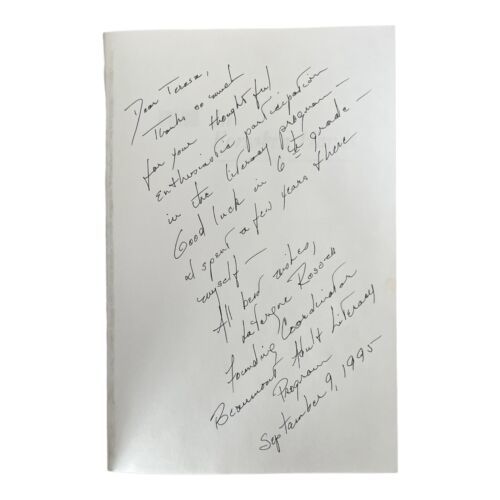 Dear Teresa,
Thanks so much
for your thoughtful
enthusiastic participation
in the literacy program —
Good luck in 6th grade —
I spent a few years there
myself —
All best wishes,
LaVergne Rosow
Founding Coordinator
Beaumont Adult Literacy
Program
September 9, 1995